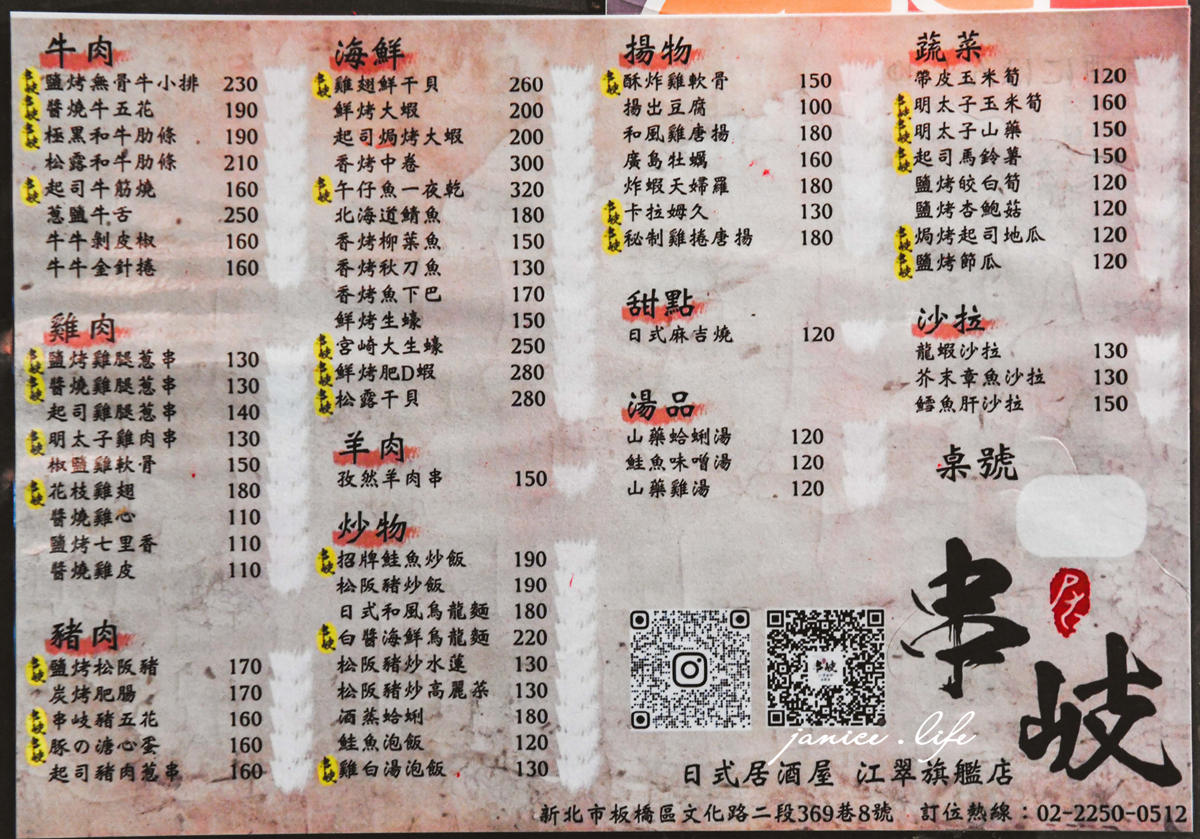 牛肉
串岐 鹽烤無骨牛小排 230
串岐 醬燒牛五花 190
串岐 極黑和牛肋條 190
松露和牛肋條 210
串岐 起司牛筋燒 160
蔥鹽牛舌 250
牛牛剝皮椒 160
牛牛金針捲 160
雞肉
串岐 鹽烤雞腿蔥串 130
串岐 醬燒雞腿蔥串 130
起司雞腿蔥串 140
串岐 明太子雞肉串 130
椒鹽雞軟骨 150
串岐 花枝雞翅 180
醬燒雞心 110
鹽烤七里香 110
醬燒雞皮 110
豬肉
串岐 鹽烤松阪豬 170
炭烤肥腸 170
串岐 串岐豬五花 160
串岐 豚の溏心蛋 160
起司豬肉蔥串 160
海鮮
串岐 雞翅鮮干貝 260
鮮烤大蝦 200
起司焗烤大蝦 200
香烤中卷 300
串岐 午仔魚一夜乾 320
北海道鯖魚 180
香烤柳葉魚 150
香烤秋刀魚 130
香烤魚下巴 170
鮮烤生蠔 150
串岐 宮崎大生蠔 250
串岐 鮮烤肥D蝦 280
串岐 松露干貝 280
羊肉
孜然羊肉串 150
炒物
串岐 招牌鮭魚炒飯 190
松阪豬炒飯 190
日式和風烏龍麵 180
串岐 白醬海鮮烏龍麵 220
松阪豬炒水蓮 130
松阪豬炒高麗菜 130
酒蒸蛤蜊 180
鮭魚泡飯 120
串岐 雞白湯泡飯 130
揚物
串岐 酥炸雞軟骨 150
揚出豆腐 100
和風雞唐揚 180
廣島牡蠣 160
炸蝦天婦羅 180
串岐 卡拉姆久 130
串岐 秘制雞捲唐揚 180
甜點
日式麻吉燒 120
湯品
山藥蛤蜊湯 120
鮭魚味噌湯 120
山藥雞湯 120
蔬菜
帶皮玉米筍 120
串岐 明太子玉米筍 160
串岐 明太子山藥 150
串岐 起司馬鈴薯 150
鹽烤皎白筍 120
鹽烤杏鮑菇 120
串岐 焗烤起司地瓜 120
串岐 鹽烤節瓜 120
沙拉
龍蝦沙拉 130
芥末章魚沙拉 130
鱈魚肝沙拉 150
桌號
串岐
janice.life
日式居酒屋 江翠旗艦店
新北市板橋區文化路二段369巷8號 訂位熱線：02-2250-0512